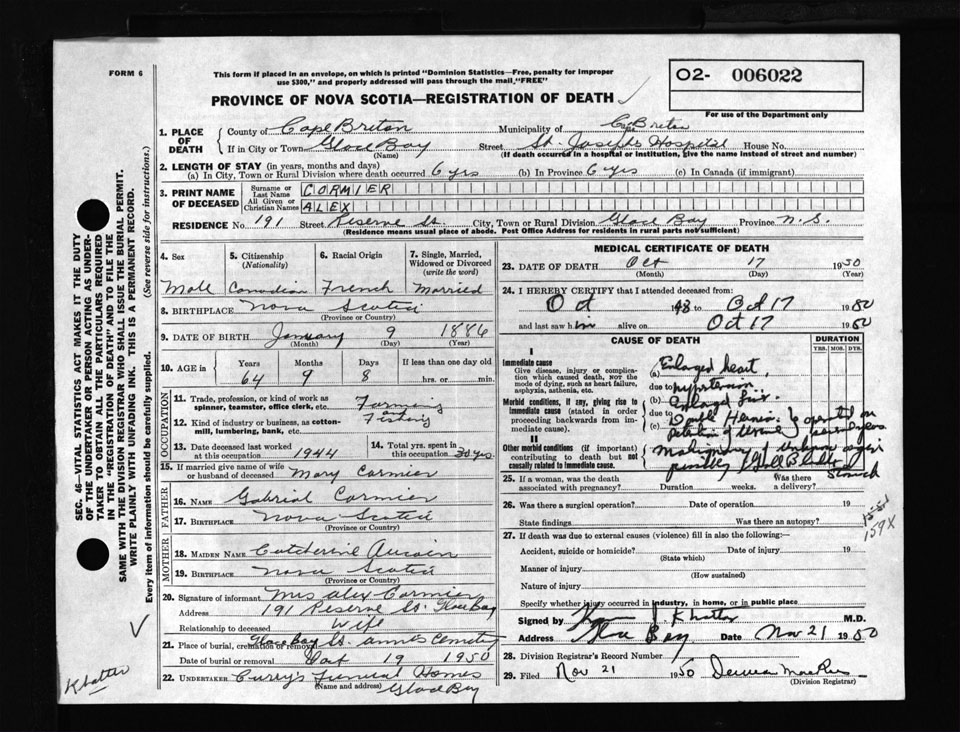 FORM 6
This form if placed in an envelope, on which is printed "Dominion Statistics—Free, penalty for improper
use $300," and properly addressed will pass through the mail, "FREE"
O2- 006022
For use of the Department only
PROVINCE OF NOVA SCOTIA—REGISTRATION OF DEATH
1. PLACE OF DEATH
County of Cape Breton Municipality of C. Breton
If in City or Town Glace Bay Street St. Joseph's Hospital House No.
(Name) (If death occurred in a hospital or institution, give the name instead of street and number)
2. LENGTH OF STAY (in years, months and days)
(a) In City, Town or Rural Division where death occurred 6 yrs (b) In Province 6 yrs (c) In Canada (if immigrant)
3. PRINT NAME OF DECEASED
Surname or Last Name CORMIER
All Given or Christian Names ALEX
RESIDENCE No. 191 Street Reserve St. City, Town or Rural Division Glace Bay Province N.S.
(Residence means usual place of abode. Post Office Address for residents in rural parts not sufficient)
4. Sex
Male
5. Citizenship
(Nationality)
Canadian
6. Racial Origin
French
7. Single, Married,
Widowed or Divorced
(write the word)
Married
8. BIRTHPLACE Nova Scotia
(Province or Country)
9. DATE OF BIRTH January 9 1886
(Month) (Day) (Year)
10. AGE in
Years Months Days If less than one day old
64 9 8 hrs. or min.
OCCUPATION
11. Trade, profession, or kind of work as
spinner, teamster, office clerk, etc. Farming
12. Kind of industry or business, as cotton-
mill, lumbering, bank, etc. Fishing
13. Date deceased last worked
at this occupation 1944
14. Total yrs. spent in
this occupation 30 yrs.
15. If married give name of wife
or husband of deceased Mary Cormier
FATHER
16. NAME Gabriel Cormier
17. BIRTHPLACE Nova Scotia
(Province or Country)
MOTHER
18. MAIDEN NAME Catherine
19. BIRTHPLACE Nova Scotia
(Province or Country)
20. Signature of informant Mrs Alex Cormier
Address 191 Reserve St. Glace Bay
Relationship to deceased Wife
21. Place of burial, cremation or removal Glace Bay St. Anne's Cemetery
Date of burial or removal Oct 19 1950
22. UNDERTAKER Curry's Funeral Homes
(Name and address) Glace Bay
MEDICAL CERTIFICATE OF DEATH
23. DATE OF DEATH Oct 17 1950
(Month) (Day) (Year)
24. I HEREBY CERTIFY that I attended deceased from:
Oct 48 Oct 17 1950
and last saw him alive on Oct 17 1950
CAUSE OF DEATH
DURATION
YRS. MOS. DYS.
I
Immediate cause
Give disease, injury or complica-
tion which caused death, NOT the
mode of dying, such as heart failure,
asphyxia, asthenia, etc.
(a) Enlarged heart,
due to hypertension
Morbid conditions, if any, giving rise to
immediate cause (stated in order
proceeding backwards from im-
mediate cause).
(b) Enlarged
due to Double Hernia operated on
(c)
II
Other morbid conditions (if important)
contributing to death but not
causally related to immediate cause.
Malignancy of
possibly Gall Bladder or
Stomach
25. If a woman, was the death
associated with pregnancy? Duration weeks. Was there
a delivery?
26. Was there a surgical operation? Date of operation 19
State findings Was there an autopsy?
159X
27. If death was due to external causes (violence) fill in also the following:—
Accident, suicide or homicide? Date of injury 19
(State which)
Manner of injury
(How sustained)
Nature of injury
Specify whether injury occurred in industry, in home, or in public place
Signed by J. Khattar M.D.
Address Glace Bay Date Nov 21 1950
28. Division Registrar's Record Number
29. Filed Nov 21 1950
(Division Registrar)
SEC. 46—VITAL STATISTICS ACT MAKES IT THE DUTY
OF THE UNDERTAKER OR PERSON ACTING AS UNDER-
TAKER TO OBTAIN ALL THE PARTICULARS REQUIRED
IN THE "REGISTRATION OF DEATH" AND TO FILE THE
SAME WITH THE DIVISION REGISTRAR WHO SHALL ISSUE THE BURIAL PERMIT.
WRITE PLAINLY WITH UNFADING INK. THIS IS A PERMANENT RECORD.
Every item of information should be carefully supplied. (See reverse side for instructions.)
Khattar